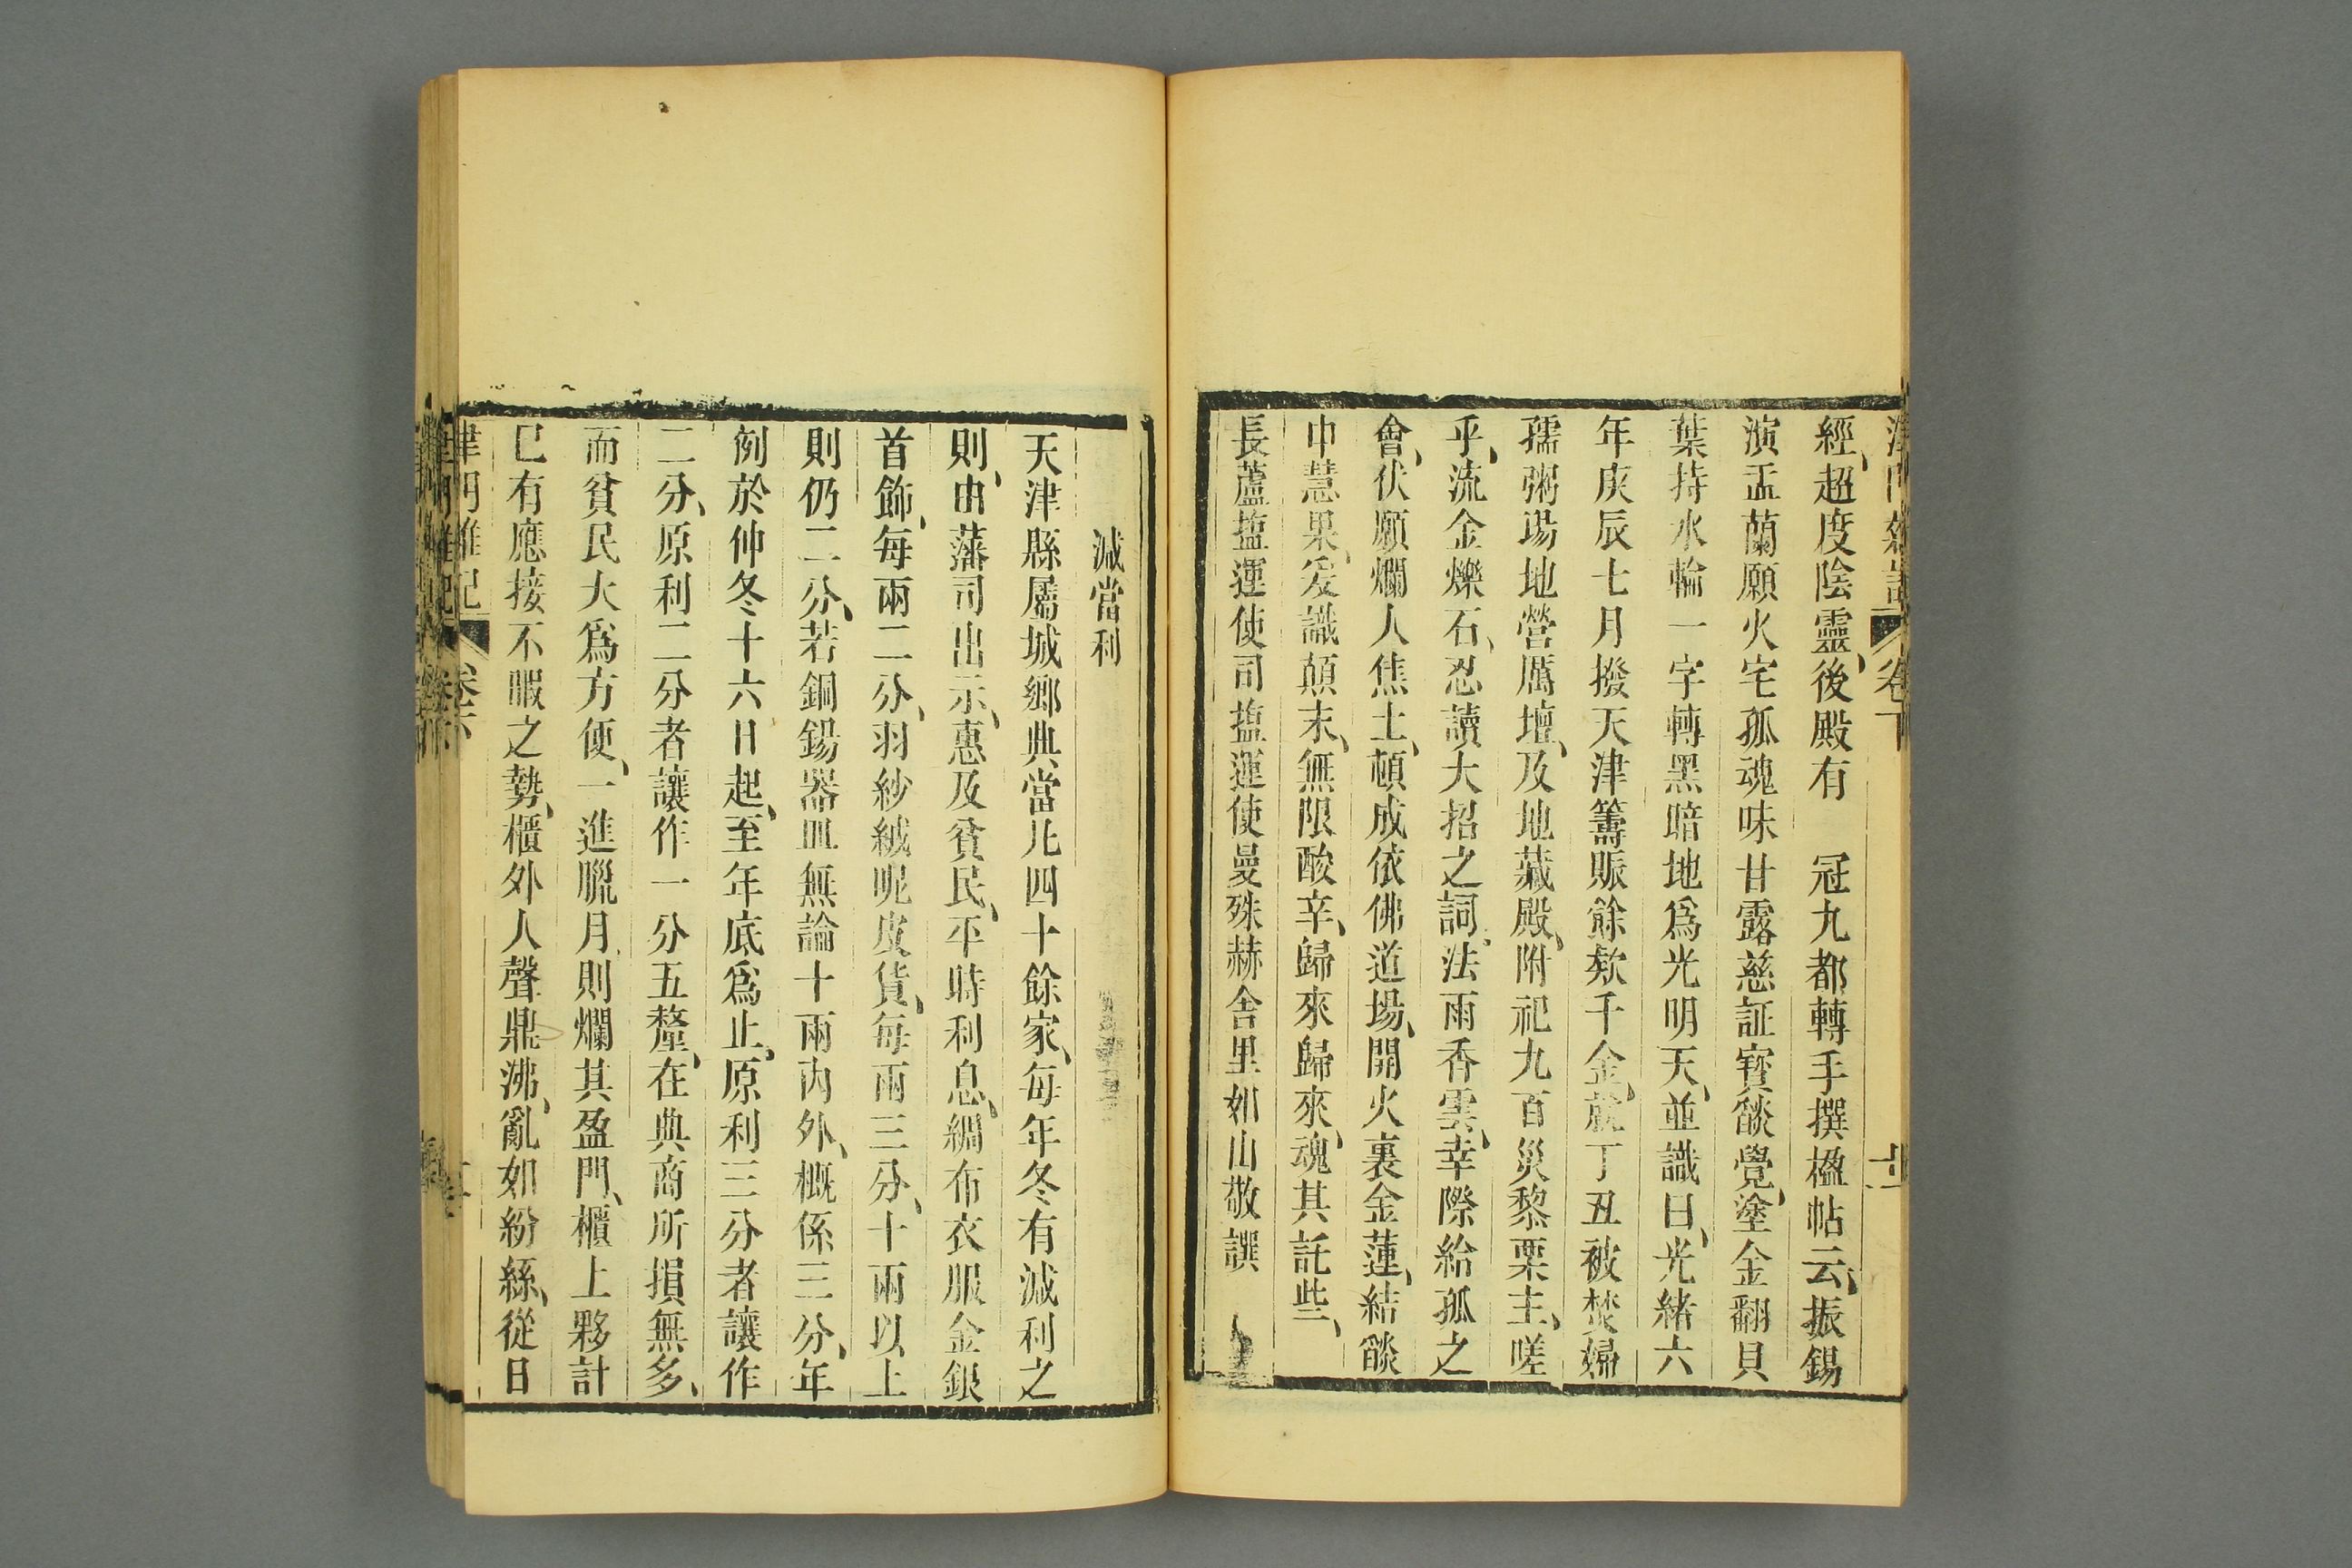 津門雜記 卷下
經、超度陰靈、後殿有 冠九都轉手撰楹帖云、振錫
演盂蘭願火宅孤魂味甘露慈証寳燄覺、塗金翻貝
葉持水輪一字轉黑暗地爲光明天、並識曰、光緒六
年庚辰七月撥天津籌賑餘欵千金、就丁丑被焚婦
孺粥塲地營厲壇、及地藏殿、附祀九百災黎栗主、嗟
乎、流金爍石、忍讀大招之詞、法雨香雲、幸際給孤之
會、伏願爛人焦土、頓成依佛道場、開火裏金蓮、結燄
中慧果、爰識顛末、無限酸辛、歸來歸來、魂其託些、
長蘆塩運使司塩運使曼殊赫舍里如山敬譔
減當利
天津縣屬城鄉典當凡四十餘家、每年冬有減利之
則、由藩司出示、惠及貧民、平時利息、綢布衣服金銀
首飾、每兩二分、羽紗絨呢皮貨、每兩三分、十兩以上
則仍二分、若銅錫器皿無論十兩內外、概係三分、年
例於仲冬十六日起、至年底爲止、原利三分者讓作
二分、原利二分者讓作一分五釐、在典商所損無多、
而貧民大爲方便、一進臘月、則爛其盈門、櫃上夥計
已有應接不暇之勢、櫃外人聲鼎沸、亂如紛絲、從日
津門雜記 卷下